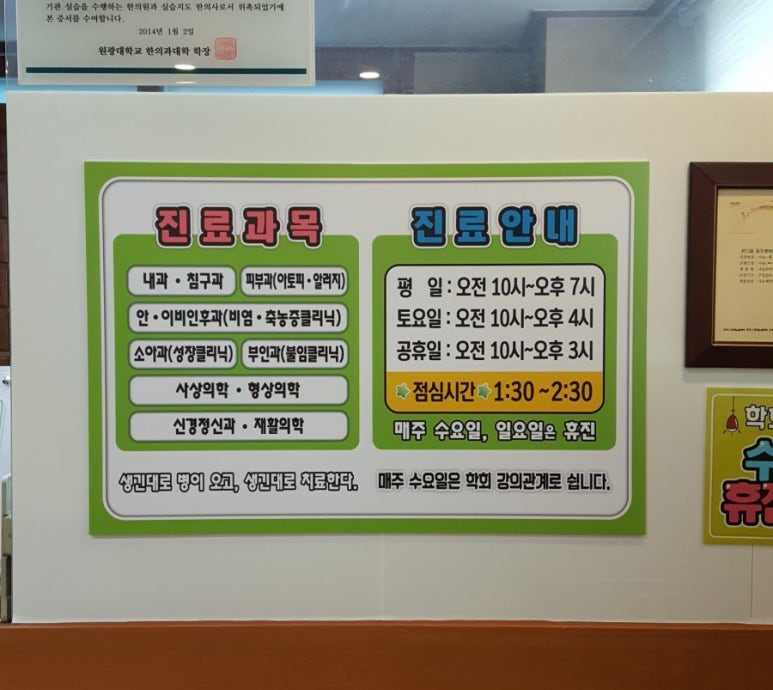 기관 실습을 수행하는 한의원과 실습지도 한의사로서 위촉되었기에
본 증서를 수여합니다.
2014年 1月 2日
원광대학교 한의과대학 학장
진료과목
내과 · 침구과 피부과(아토피 · 알러지)
안 · 이비인후과(비염 · 축농증클리닉)
소아과(성장클리닉) 부인과(불임클리닉)
사상의학 · 형상의학
신경정신과 · 재활의학
생긴대로 병이 오고, 생긴대로 치료한다.
진료안내
평 일 : 오전 10시~오후 7시
토요일 : 오전 10시~오후 4시
공휴일 : 오전 10시~오후 3시
점심시간 1:30 ~2:30
매주 수요일, 일요일은 휴진
매주 수요일은 학회 강의관계로 쉽니다.
학회
수
휴진